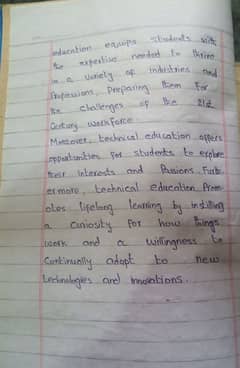 education equips students with
the expertise needed to thrive
in a variety of industries and
Professions, Preparing them For
the challenges of the 21st
Century workforce.
Moreover, technical education offers
opportunities For students to explore
their Interests and Passions. Furth
ermore, technical education Prom
otes lifelong learning by instilling
a curiosity for how things
work and a willingness to
Continually adapt to new
technologies and innovations.